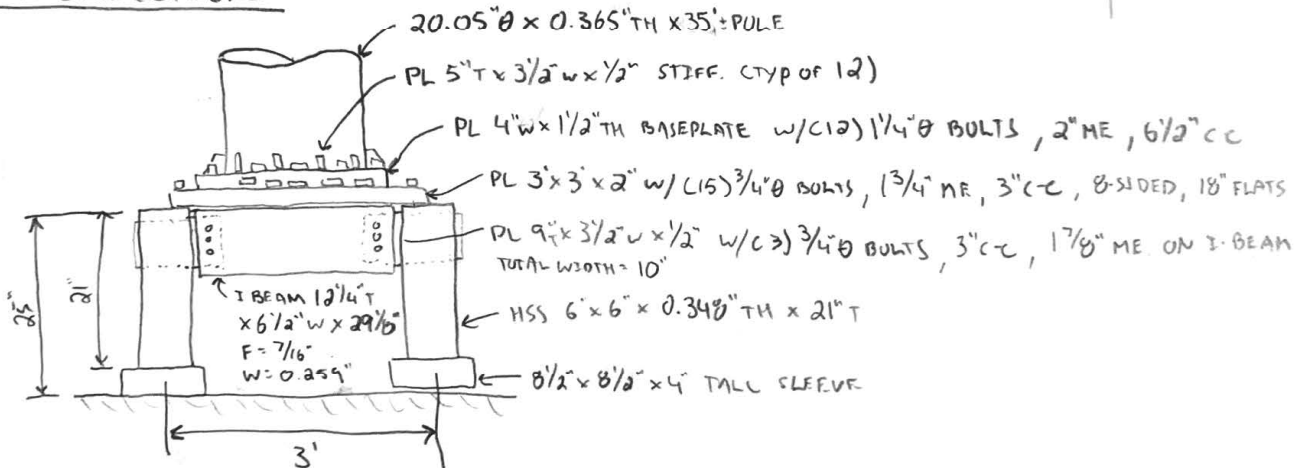 20.05"θ x 0.365"TH x 35'± POLE
PL 5"T x 3 1/2"W x 1/2" STIFF. (TYP OF 12)
PL 4"W x 1 1/2"TH BASEPLATE W/(12) 1 1/4"θ BOLTS, 2" ME, 6 1/2" CC
PL 3' x 3' x 2" W/(15) 3/4"θ BOLTS, 1 3/4" ME, 3" C-C, 8-SIDED, 18" FLATS
PL 9"T x 3 1/2"W x 1/2" W/(3) 3/4"θ BOLTS, 3" C-C, 1 7/8" ME ON I-BEAM
TOTAL WIDTH = 10"
I BEAM 12 1/4"T
x 6 1/2"W x 29 1/8"
F = 7/16"
W = 0.259"
HSS 6" x 6" x 0.348"TH x 21"T
8 1/2" x 8 1/2" x 4" TALL SLEEVE
25"
21"
3'